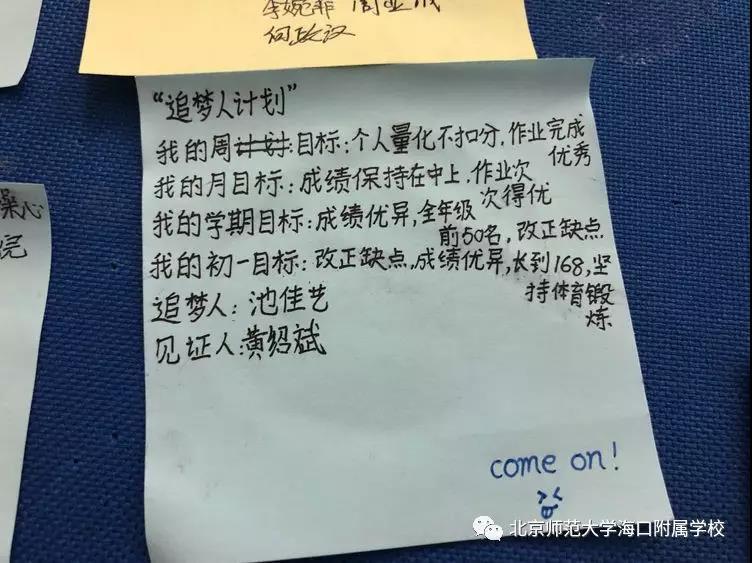 李婉菲 周亚成
何政汉
操心
完
“追梦人计划”
我的周计划:目标:个人量化不扣分,作业完成
优秀
我的月目标:成绩保持在中上,作业次
次得优
我的学期目标:成绩优异,全年级
前50名,改正缺点
我的初一目标:改正缺点,成绩优异,长到168,坚
持体育锻
炼
追梦人:池佳艺
见证人:黄绍斌
come on!
北京师范大学海口附属学校